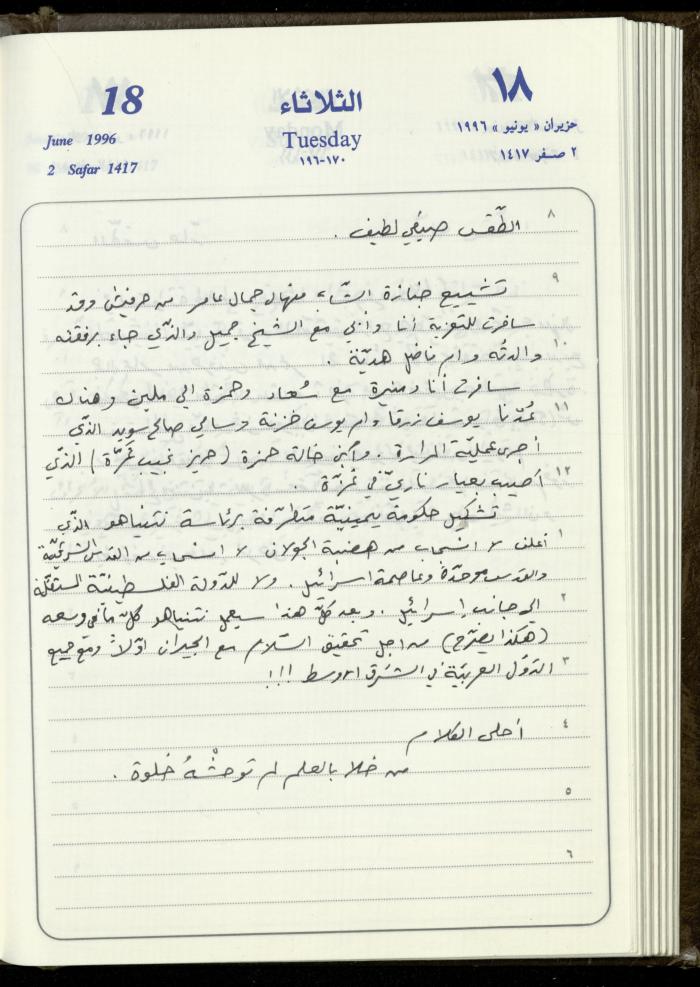 18
June 1996
2 Safar 1417
الثلاثاء
Tuesday
١٧٠-١٩٦
١٨
حزيران « يونيو » ١٩٩٦
٢ صفر ١٤١٧
٨ الطّقس صيفي لطيف .
٩
تشييع جنازة الشاب منهال جمال عامر من حرفيش وقد
سافرت للتعزية أنا وأبي مع الشيخ جميل والذّي جاء برفقته
١٠ والدته وام فاضل هديّة .
سافرت أنا ومنيرة مع سُعاد وحمزة الى وهناك
١١ عُدنا يوسف زرقا وام يوسف خزنة وسامي صالح سويد الذّي
أجرى عمليّة المرارة . وابن خالة حمزة ( نجيب ) الذّي
١٢ أصيب بعيار ناريّ في غزّة .
تشكيل حكومة يمينيّة متطرّفة برئاسة نتنياهو الذّي
١ أعلن لا انسحاب من هضبة الجولان لا انسحاب من القدس الشرقيّة
والقدس موحدّة وعاصمة اسرائيل . ولا للدولة الفلسطينيّة المستقلّة
٢ الى جانب إسرائيل . وبعد كلّ هذا سيعمل نتنياهو كلّ ما في وسعه
( هكذا يصّرح ) من اجل تحقيق السّلام مع الجيران اوّلاً ومع جميع
٣ الدّول العربيّة في الشرق الاوسط !!!
٤ أحلى الكلام
من خلا بالعلم لم توحشْهُ خلوة .
٥
٦